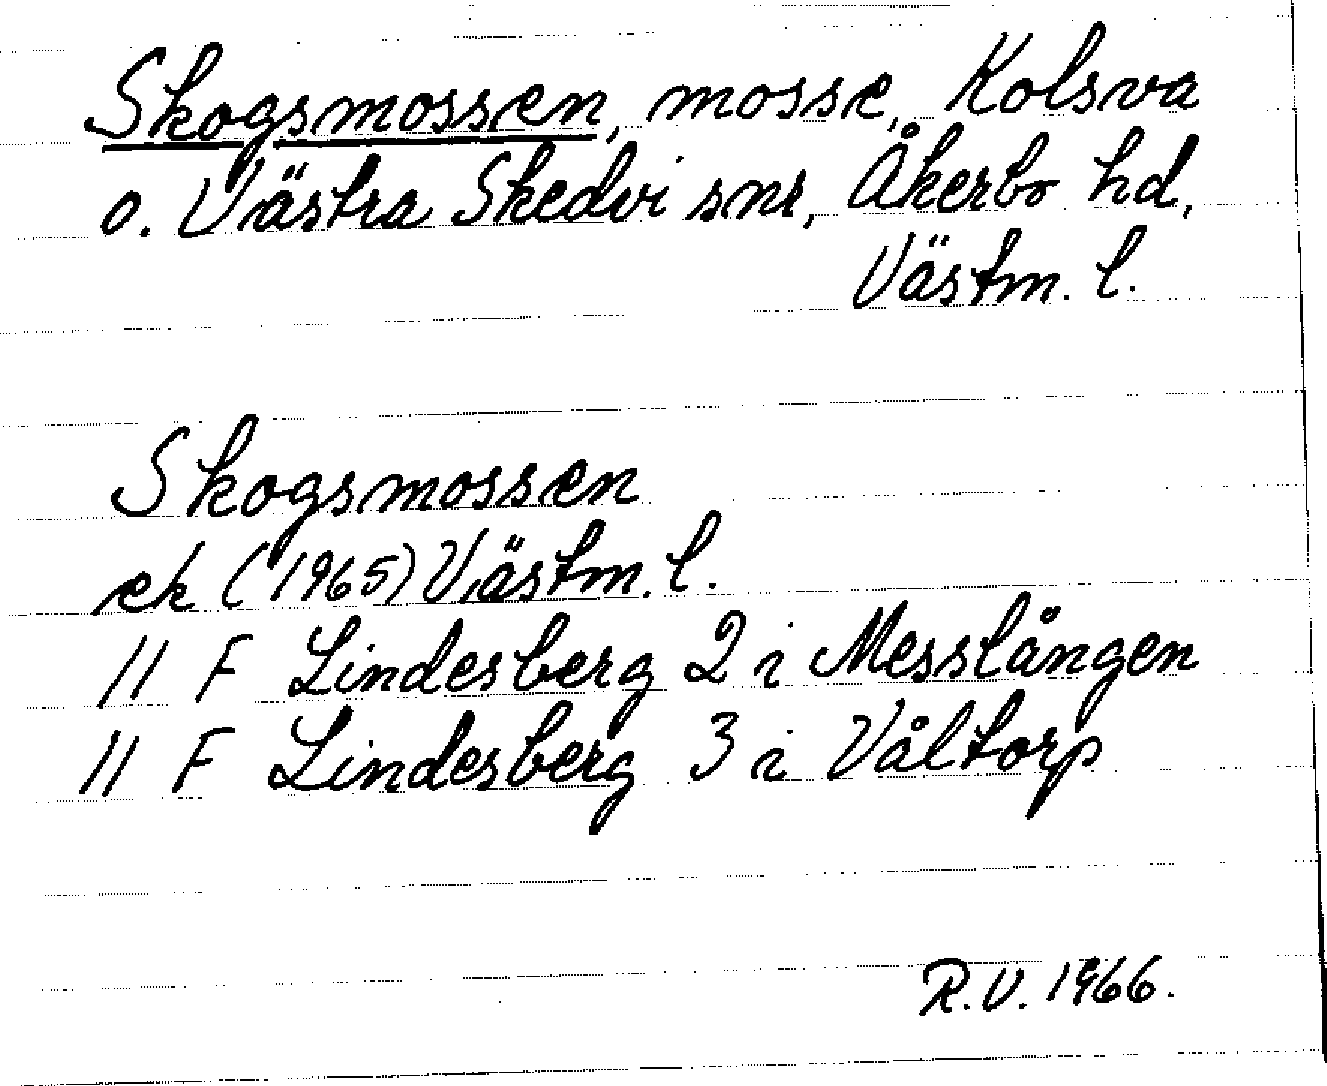 Skogsmossen, mosse, Kolsva
o. Västra Skedvi snr, Åkerbo hd,
Västm. l.
Skogsmossen
ek (1965) Västm. l.
11 F Lindesberg 2 i Messlången
11 F Lindesberg 3 i Våltorp
R.V. 1966.